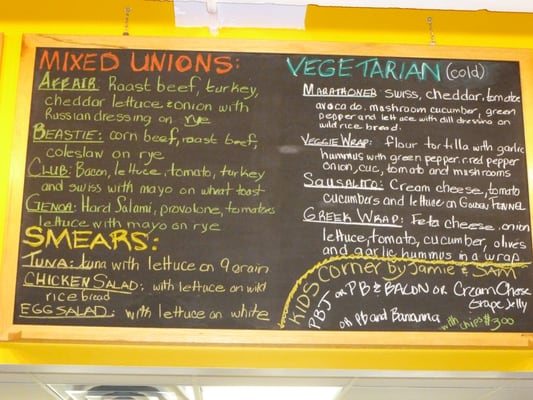 MIXED UNIONS:
AFFAIR: Roast beef, turkey,
cheddar lettuce & onion with
Russian dressing on rye
BEASTIE: corn beef, roast beef,
coleslaw on rye
CLUB: Bacon, lettuce, tomato, turkey
and swiss with mayo on wheat toast
GENOA: Hard Salami, provolone, tomatoes
lettuce with mayo on rye
SMEARS:
TUNA: tuna with lettuce on 9 grain
CHICKEN SALAD: with lettuce on wild
rice bread
EGG SALAD: with lettuce on white
VEGETARIAN (cold)
MARATHONER: swiss, cheddar, tomatoe
avocado, mushroom cucumber, green
pepper and lettuce with dill dressing on
wild rice bread.
VEGGIE WRAP: flour tortilla with garlic
hummus with green pepper, red pepper
onion, cuc, tomato and mushrooms
SAUSALITO: Cream cheese, tomato
cucumbers and lettuce on GOLDEN FENNEL
GREEK WRAP: Feta cheese, onion
lettuce, tomato, cucumber, olives
and garlic hummus in a wrap
KIDS Corner by Jamie & SAM
PBJ or PB & BACON or Cream Cheese
Grape Jelly
or Pb and Bananna
with chips $3.00